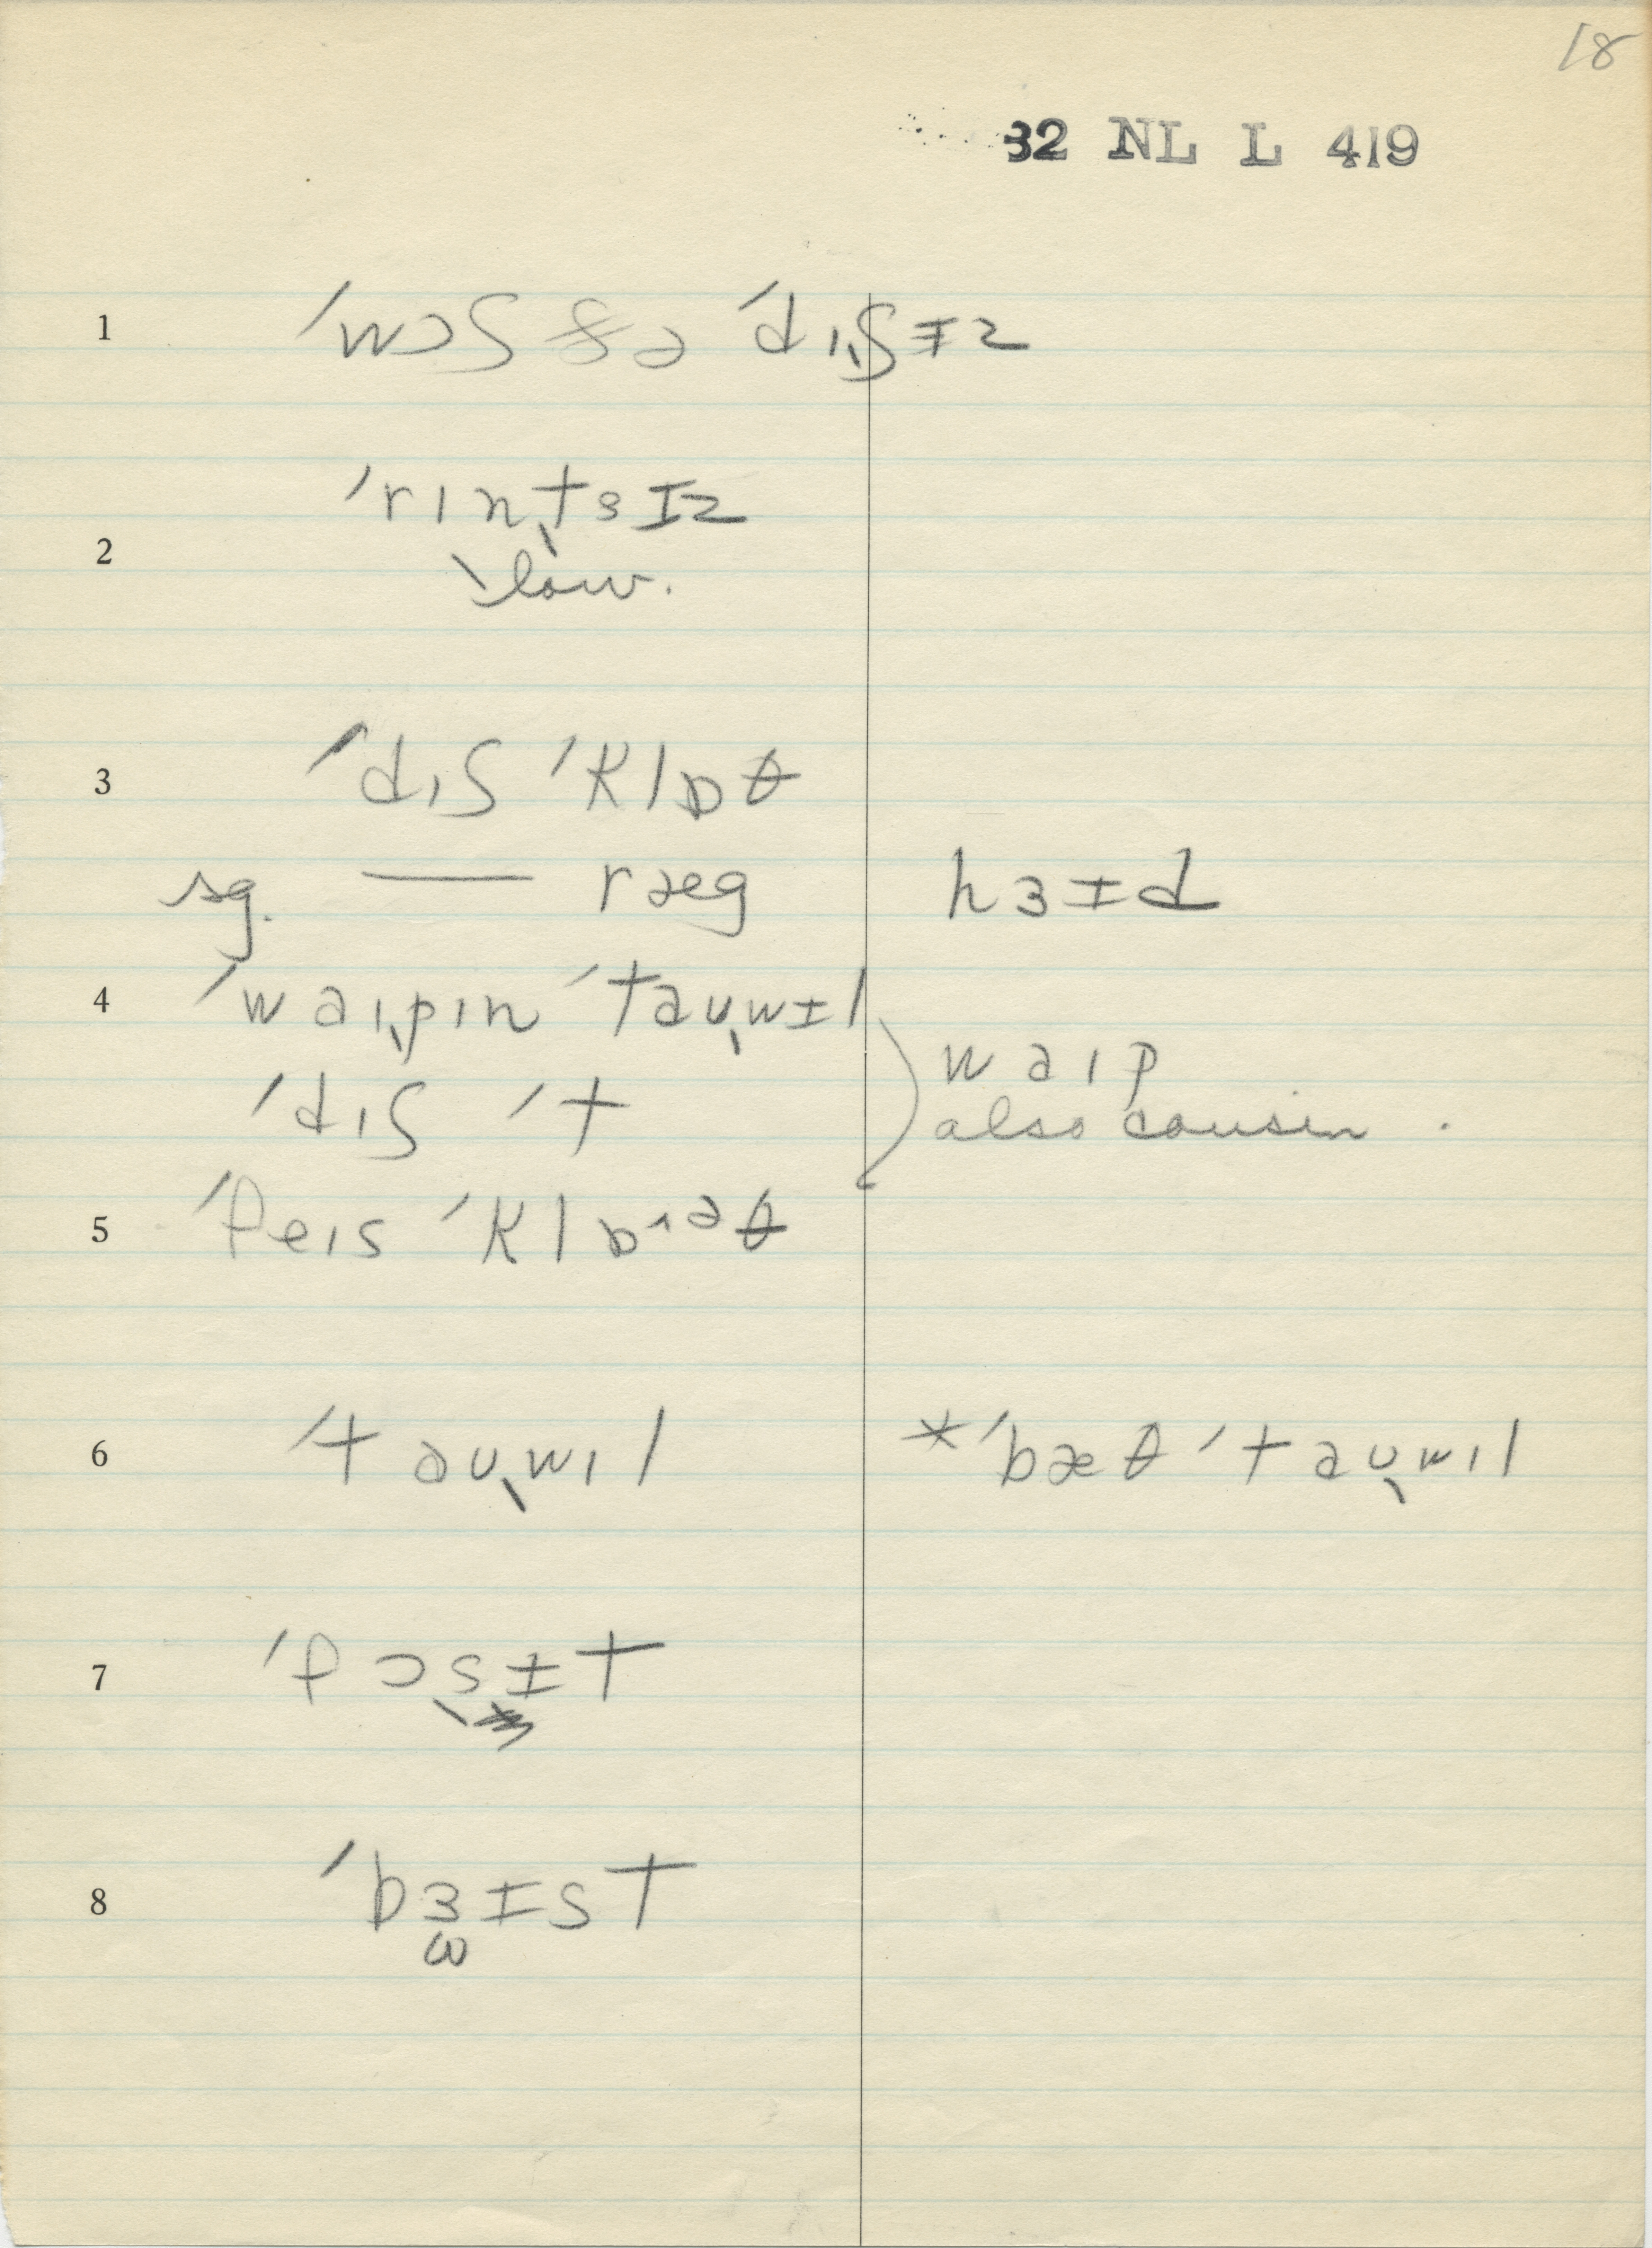 18
32 NL L 419
1 ˈwɔʃ ðə ˈdɪʃɨz
2 ˈrɪntsɪz
low.
3 ˈdɪʃ ˈklɒθ
sg. — ræg hɜɨd
4 ˈwaɪpɪn ˈtaʊwɨl
waɪp
ˈdɪʃ ˈt
also cousin.
5 ˈfeɪs ˈklɒ˄ᵊθ
6 ˈtaʊwɪl *ˈbæθ ˈtaʊwɪl
7 ˈfɔsɨt
8 ˈbɜɨst
ω